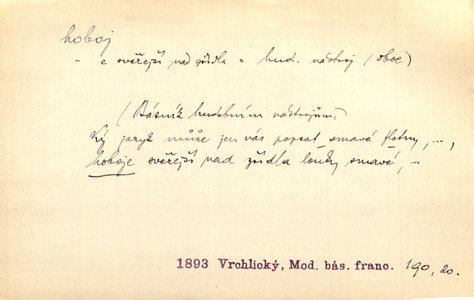 hoboj
- e svěřejší nad zřídla = hud. nástroj (oboe)
(Básník hudebním nástrojům,)
Ký jazyk může jen vás popsat, smavé fletny, ...,
hoboje svěřejší nad zřídla louky smavé, ...
1893 Vrchlický, Mod. bás. franc. 190, 20.